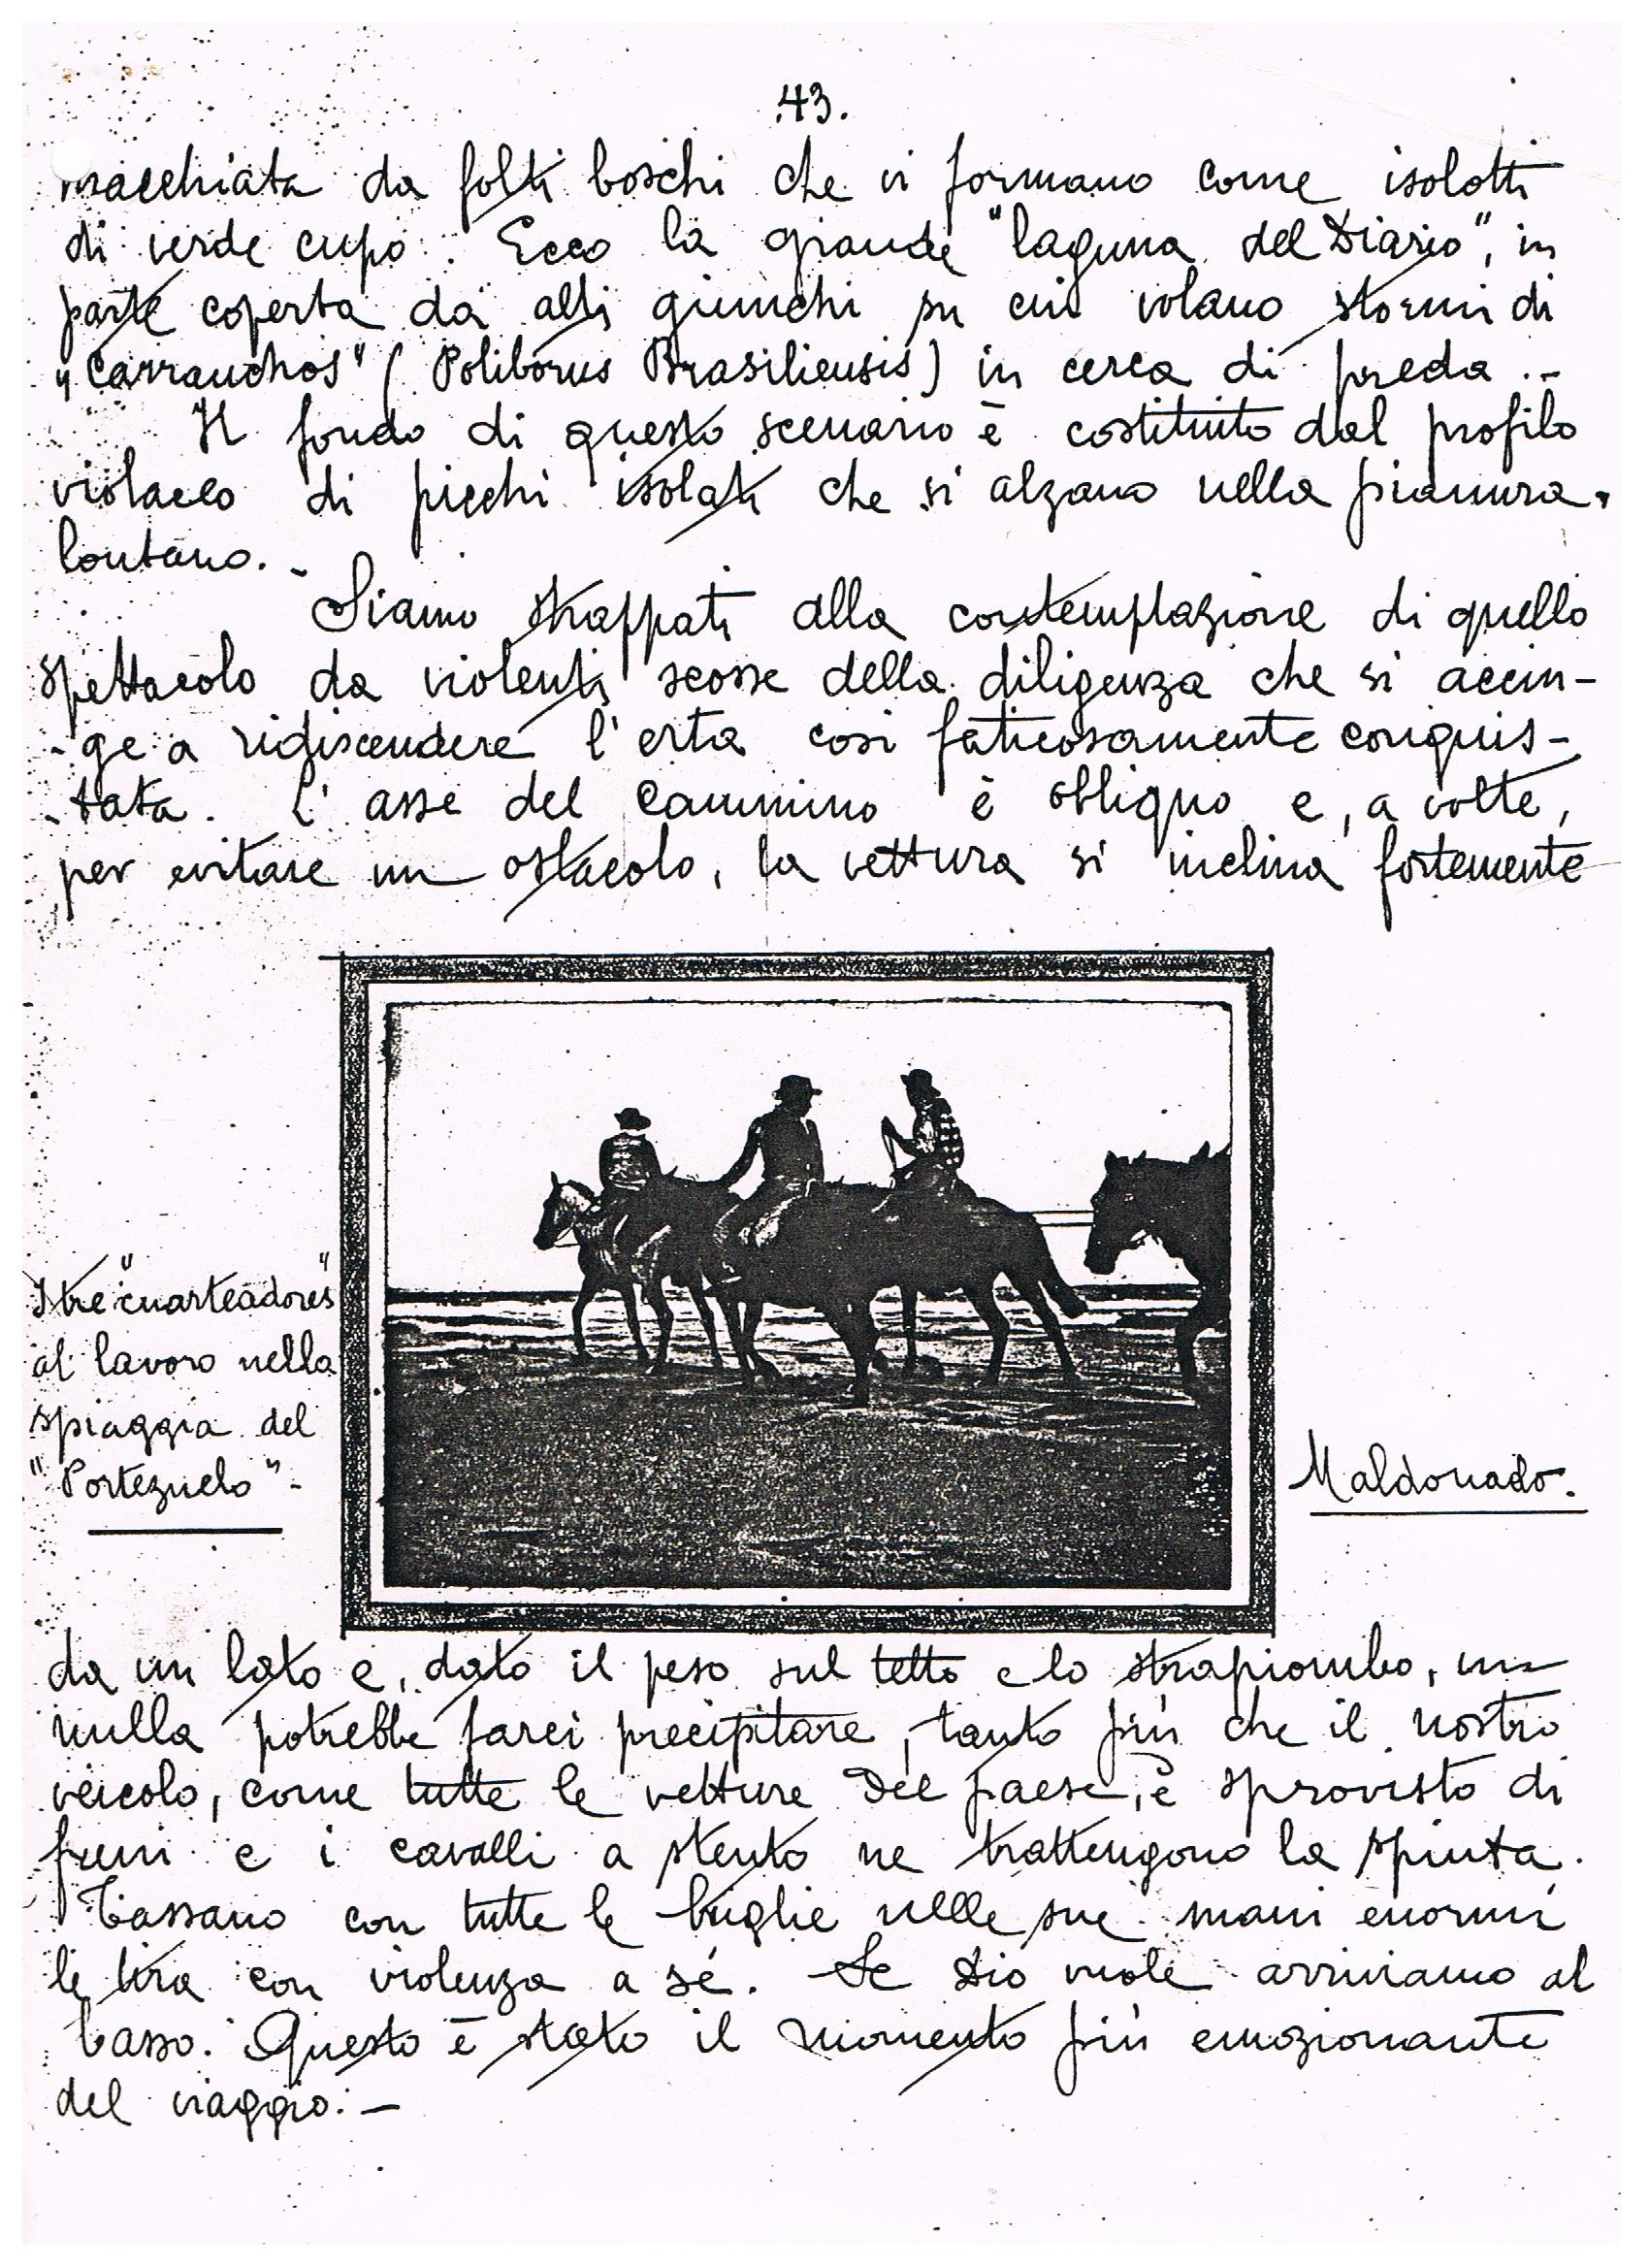 43.
macchiata da folti boschi che vi formano come isolotti
di verde cupo. Ecco la grande "laguna del Diario", in
parte coperta da alti giunchi su cui volano stormi di
"Carranchos" (Poliborus Brasiliensis) in cerca di preda.-
Il fondo di questo scenario è costituito dal profilo
violaceo di picchi isolati che si alzano nella pianura,
lontano.-
Siamo strappati alla contemplazione di quello
spettacolo da violenti scosse della diligenza che si accin-
-ge a ridiscendere l'erta così faticosamente conquis-
-tata. L'asse del cammino è obliquo e, a volte,
per evitare un ostacolo, la vettura si inclina fortemente
I tre "cuarteadores"
al lavoro nella
spiaggia del
"Portezuelo"-
Maldonado.
da un lato e, dato il peso sul tetto e lo strapiombo, un
nulla potrebbe farci precipitare, tanto più che il nostro
veicolo, come tutte le vetture del paese, è sprovisto di
freni e i cavalli a stento ne trattengono la spinta.
Bassano con tutte le briglie nelle sue mani enormi
le tira con violenza a sé. Se Dio vuole arriviamo al
basso. Questo è stato il momento più emozionante
del viaggio.-